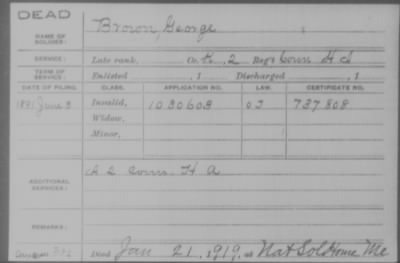 DEAD
NAME OF SOLDIER: Brown, George
SERVICE: Late rank, Co. K, 2 Reg't Conn H A
TERM OF SERVICE: Enlisted , 1 Discharged , 1
DATE OF FILING. CLASS. APPLICATION NO. LAW. CERTIFICATE NO.
1891 June 3 Invalid, 1030608 03 737808
Widow,
Minor,
ADDITIONAL SERVICES: A 2 Conn. H A
REMARKS:
Died Jan 21, 1919, at Nat Sol Home Me